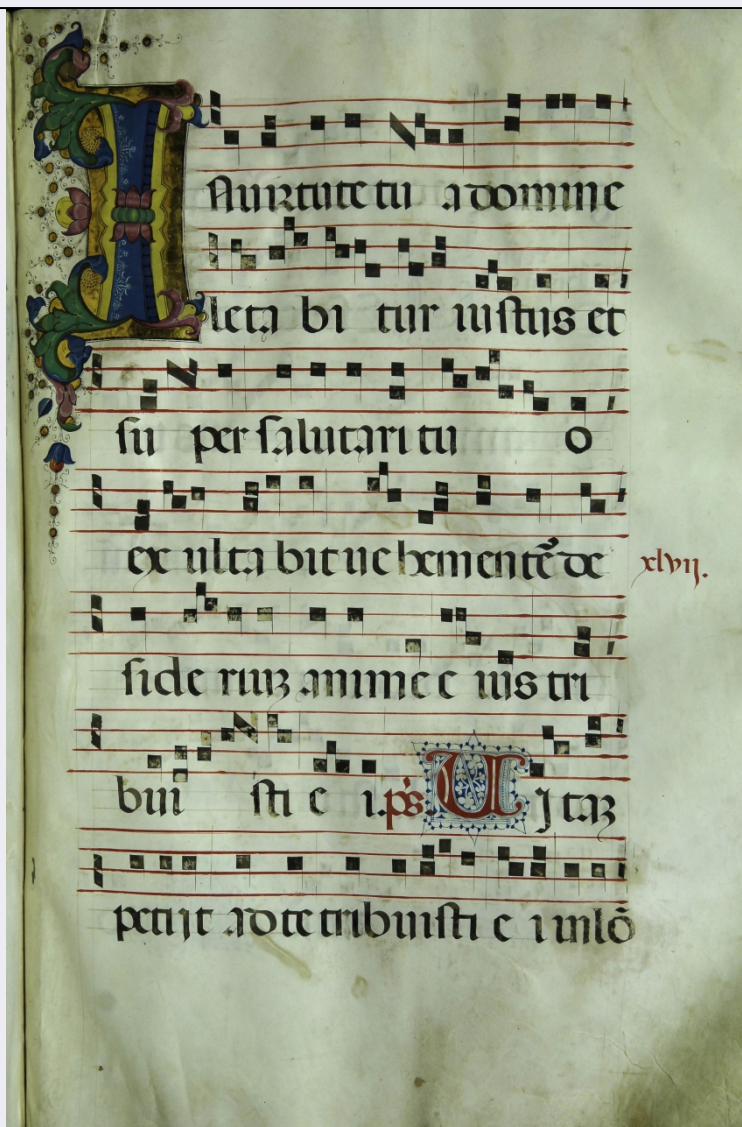 In uirtute tu a domine
leta bi tur iustus et
su per salutari tu o
ex ulta bit ue hementē de
xlvij.
side riuʒ anime e ius tri
bui sti e i. p̄s. Uj taʒ
petijt a te tribuisti e i inlō